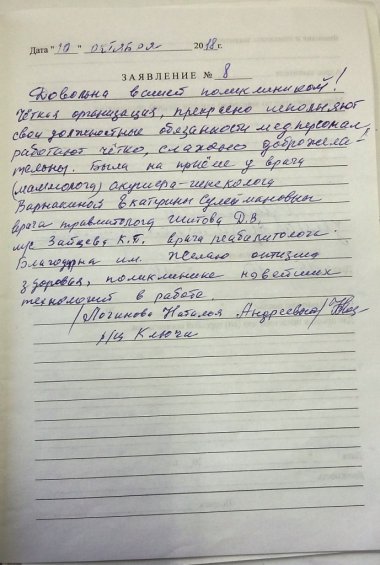 Дата "10" октября 2018 г.
ЗАЯВЛЕНИЕ № 8
Довольна вашей поликлиникой!
Чёткая организация, прекрасно исполняют
свои должностные обязанности медперсонал,
работают чётко, слажено доброжела-
тельны. Была на приёме у врача
(маммолога) акушера-гинеколога
Варнакиной Екатерины Сулеймановны
врача травматолога Шитова Д.В.
К.П. врача реабилитолога.
Благодарна им. Желаю оптимизма
здоровья, поликлинике новейших
технологий в работе.
/Логинова Наталья Андреевна/
р/ц Ключи